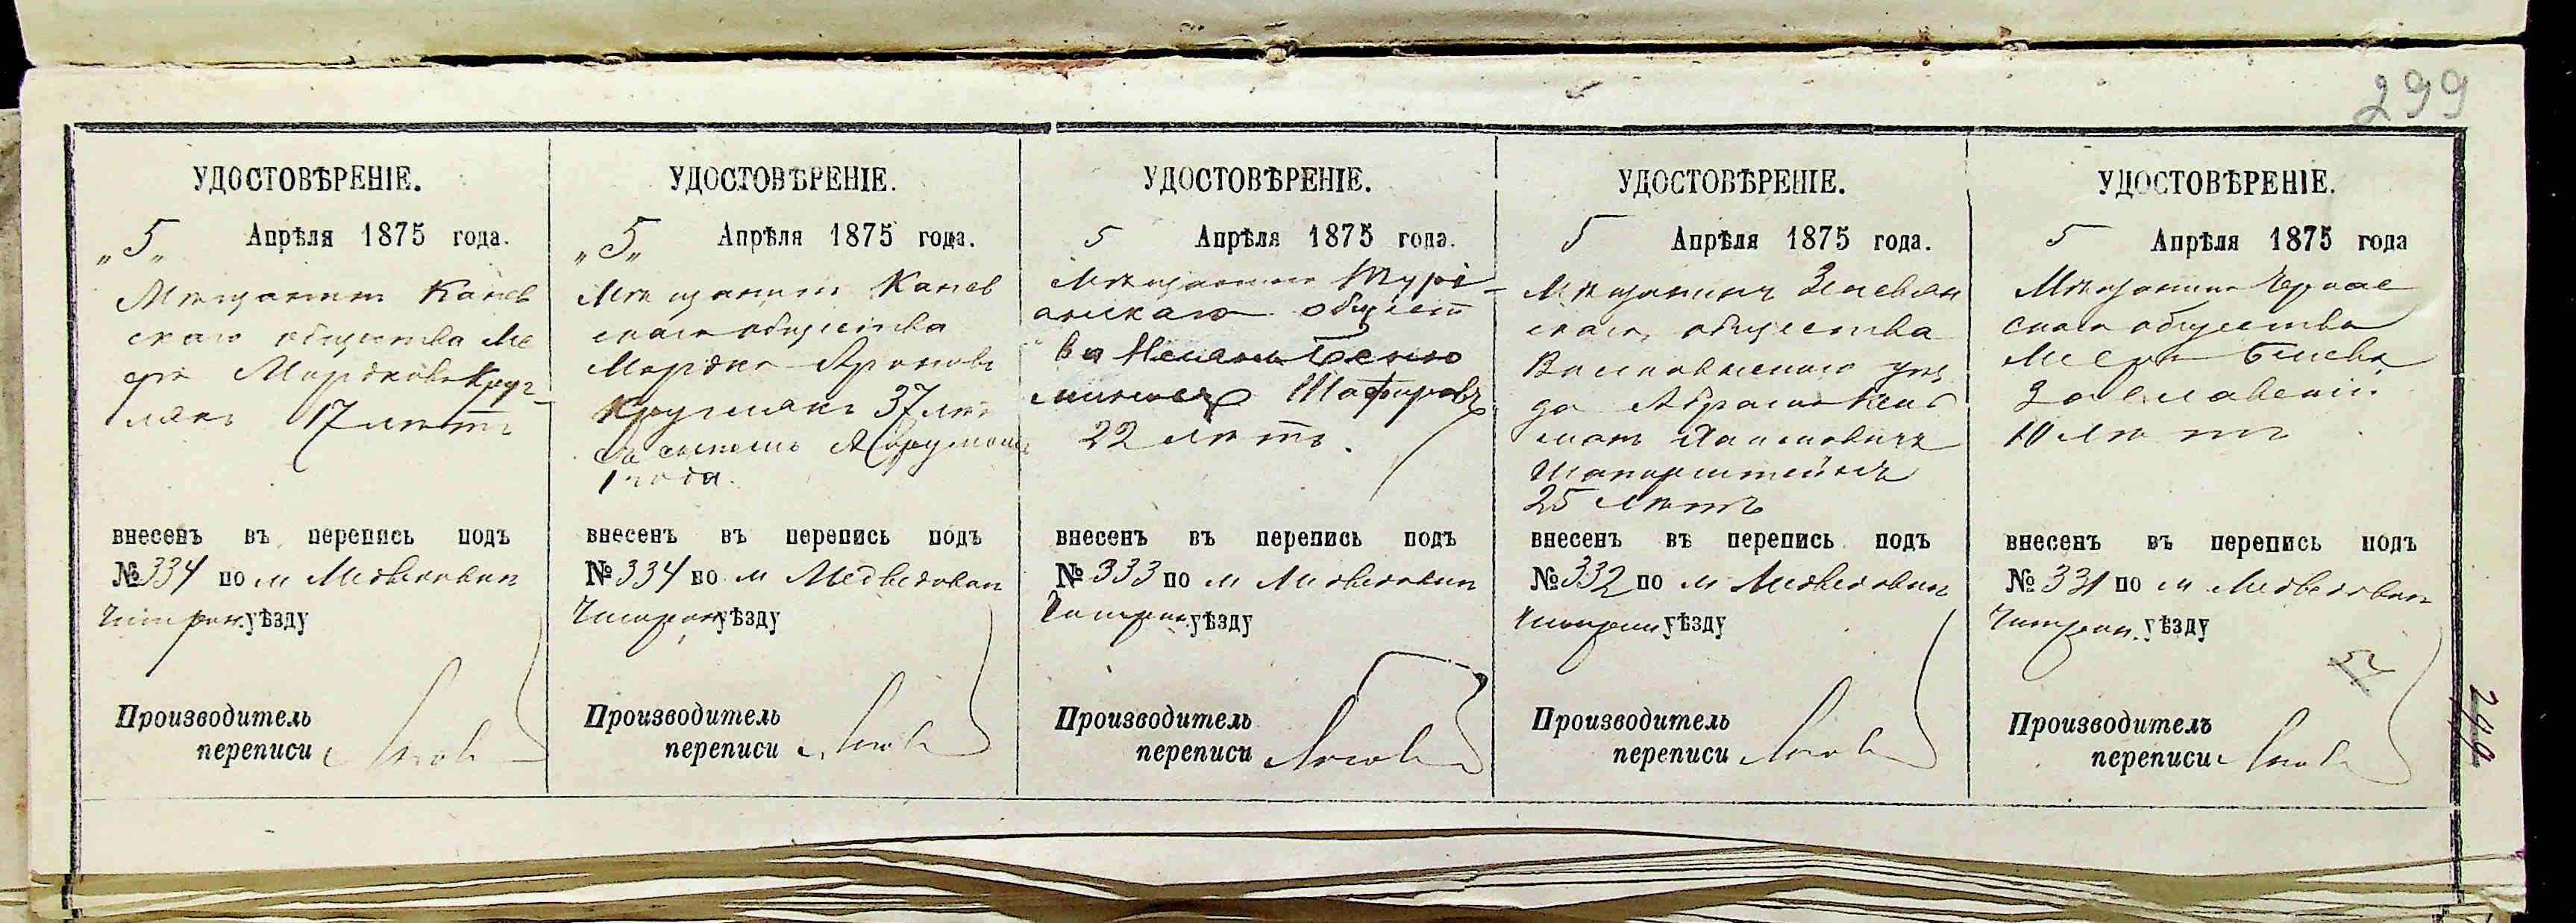 299
УДОСТОВѢРЕНІЕ.
„5„ Апрѣля 1875 года.
Мѣщанинъ Канев
скаго общества Ме
ер Мордковъ Круг
лякъ 17 лѣтъ
внесенъ въ перепись подъ
№ 334 по м Медведовкѣ
Чигирин. уѣзду
Производитель
переписи
УДОСТОВѢРЕНІЕ.
„5„ Апрѣля 1875 года.
Мѣщанинъ Канев
скаго общества
Мордко Ароновъ
Круглякъ 37 лѣтъ
съ сыномъ
1 года.
внесенъ въ перепись подъ
№ 334 по м Медведовкѣ
Чигирин уѣзду
Производитель
переписи
УДОСТОВѢРЕНІЕ.
5 Апрѣля 1875 года.
Мѣщанинъ Турі-
анскаго общест
ва Беню
Шафировъ
22 лѣтъ.
внесенъ въ перепись подъ
№ 333 по м Медведовкѣ
Чигирин. уѣзду
Производитель
переписи
УДОСТОВѢРЕНІЕ.
5 Апрѣля 1875 года.
Мѣщанинъ
скаго общества
уѣз
да Абрамъ
25 лѣтъ
внесенъ въ перепись подъ
№ 332 по м Медведовкѣ
Чигирин уѣзду
Производитель
переписи
УДОСТОВѢРЕНІЕ.
5 Апрѣля 1875 года
Мѣщанинъ Черкас
скаго общества
Меер
Заславскій
10 лѣтъ
внесенъ въ перепись подъ
№ 331 по м Медведовкѣ
Чигирин. уѣзду
Производитель
переписи
299